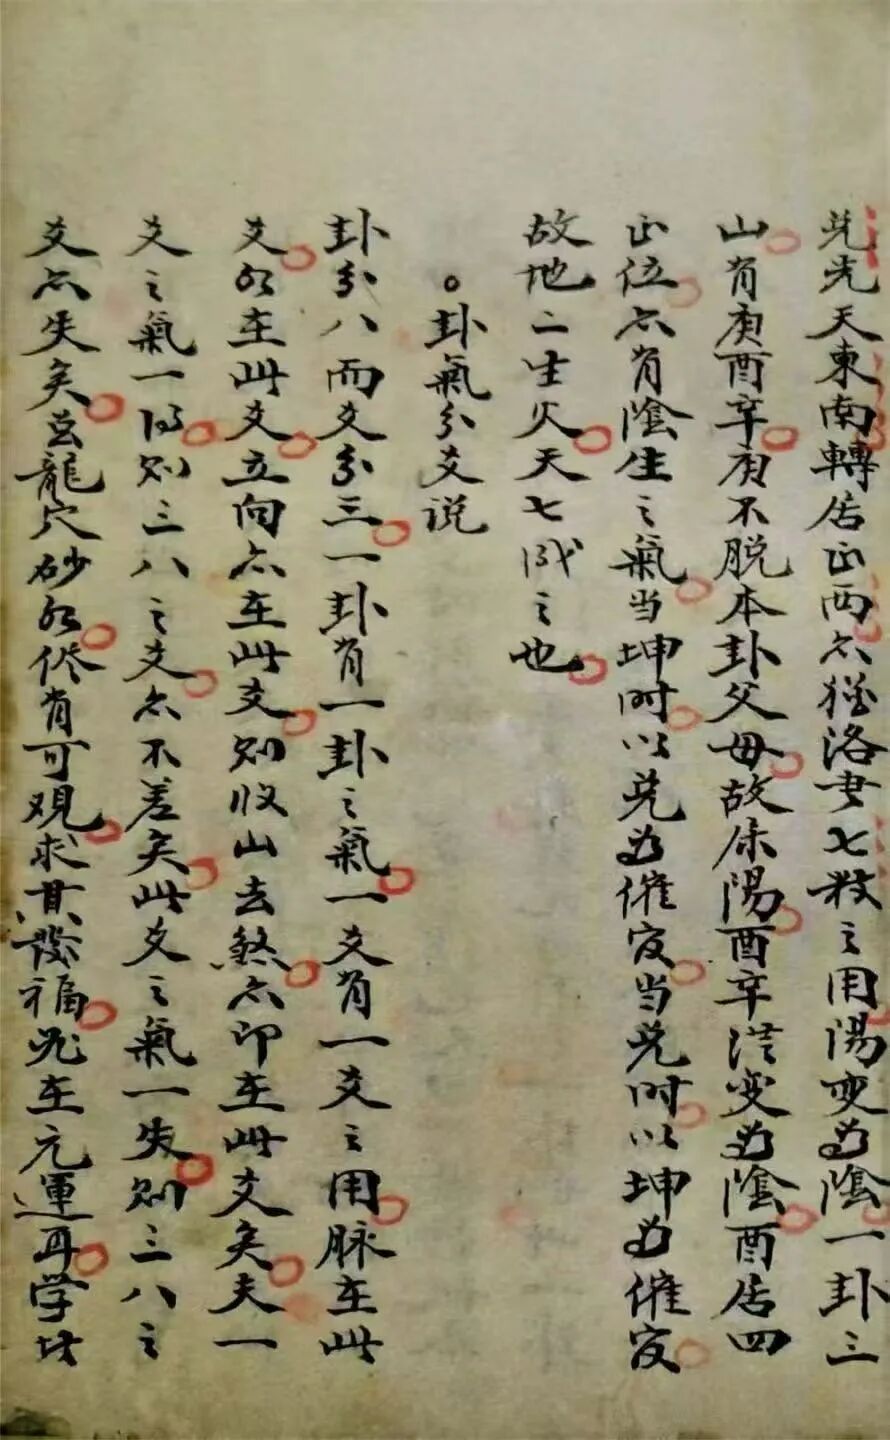 兑先天東南轉居正西亦猶洛書七数之用陽变为陰一卦三
山有庚酉辛庚不脱本卦父母故依陽酉辛从变为陰酉居四
正位亦有陰生之氣当坤时以兑为催官当兑时以坤为催官
故地二生火天七成之也
。卦氣分爻说
卦分八而爻分三一卦有一卦之氣一爻有一爻之用脉在此
爻水在此爻立向亦在此爻则收山去煞亦即在此爻矣夫一
爻之氣一得则三八之爻亦不差矣此爻之氣一失则三八之
爻亦失矣益龍穴砂水俻有可觀求其發福总在元運耳学此